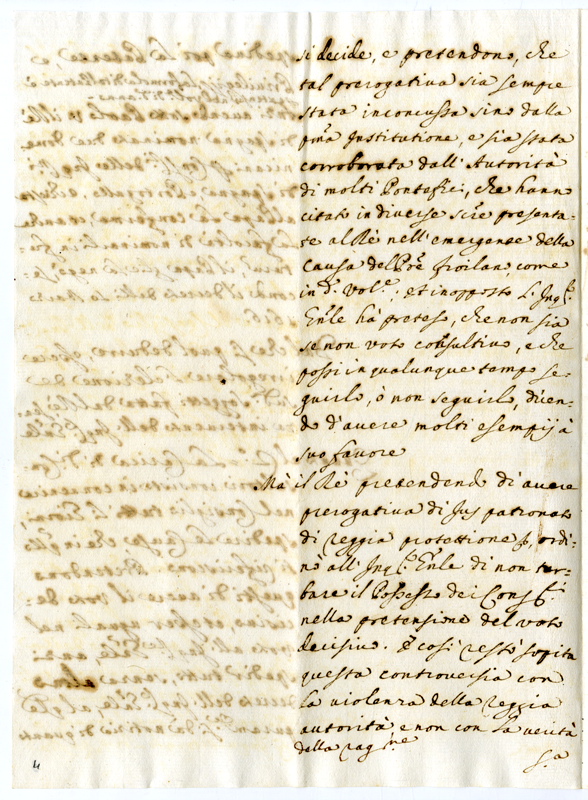 si decide, e pretendono, che
tal prerogativa sia sempre
stata inconcussa sino dalla
pma Institutione, e sia stata
corroborata dall'Autorità
di molti Pontefici, che hanno
citato in diverse scre presenta-
te al Rè nell'emergenze della
Causa del Pre froilan, come
in d. Vol.e, et in opposto L'Inq.r
Gnle hà preteso, che non sia
se non voto consultivo, e che
possi in qualunque tempo se-
guirlo, ò non seguirlo, dicen-
do d'avere molti esempij à
suo favore
Mà il Rè pretendendo di avere
prerogativa di Jus patronato
di reggia protettione, ordi-
nò all'Inq.r Gnle di non tur-
bare il Possesso dei Cons.ri
nella pretensione del voto
decisivo. E così restò sopita
questa controversia con
la violenza della reggia
autorità, e non con la verità
della rag.ne
S.a
4